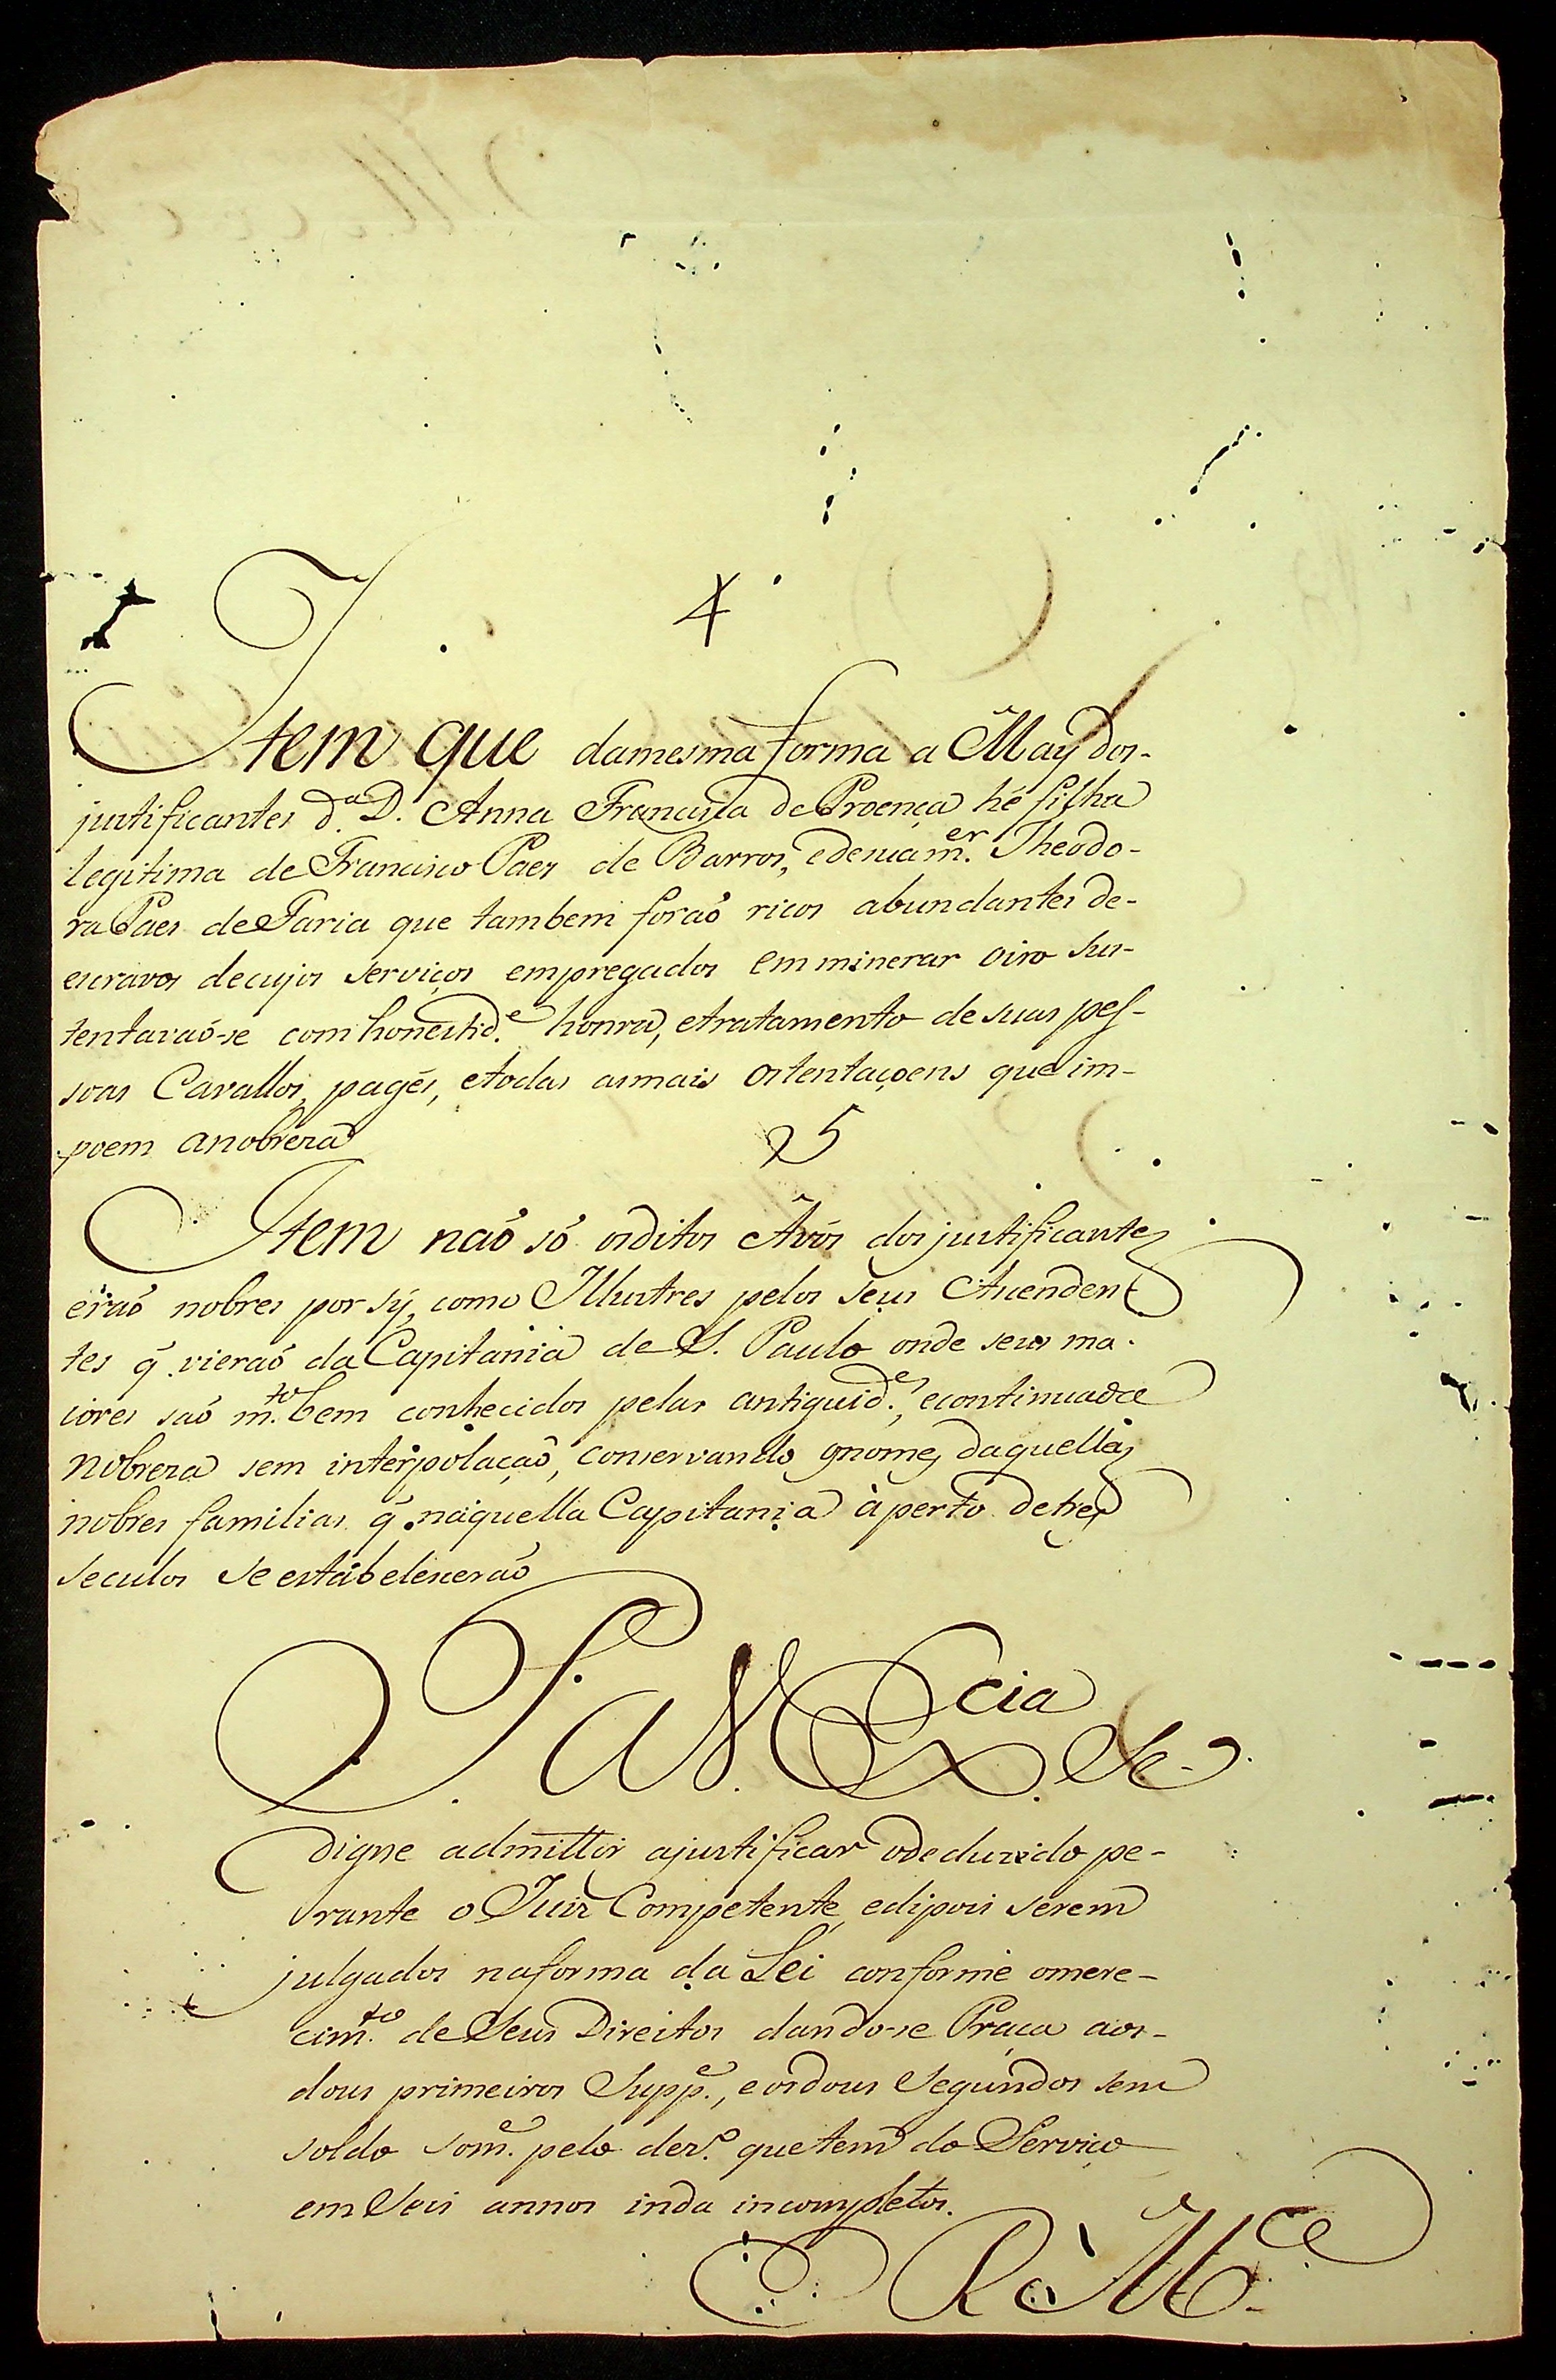 4
Item que damesma forma a May dos-
justificantes d.ª D. Anna Francisca de Proença hé filha
legitima de Francisco Paes de Barros, edesua m.er Theodo-
ra Paes de Faria que tambem foraõ ricos abundantes de-
escravos decujos serviços empregados em minerar oiro sus-
tentavaõ-se com honestid.e honra, etratamento de suas pes-
soas Cavallos, pagés, etodas asmais ostentaçoens que im-
poem anobreza
5
Item naõ só osditos Avós dos justificantes
eraõ nobres por sÿ, como Illustres pelos seus Ascenden
tes q̃ vieraõ da Capitania de S. Paulo onde seus ma-
iores saõ m.to bem conhecidos pelas antiguid.es, econtinuada
nobreza sem interpolaçaõ, conservando osnomes daquellas
nobres familias q̃ naquella Capitania à perto detres
seculos se estabelesceraõ
P. a V. Ex.cia Se-
digne admittir ajustificar odeduzido pe-
rante o Juiz Competente, edipois serem
julgados naforma da Lei conforme omere-
cim.to de Seus Direitos dando-se Praça aos-
dous primeiros Supp.e, eosdous Segundos sem
soldo som.e pelo dez.º quetem do Serviço
em Seis annos inda incompletos.
E R. M.ce